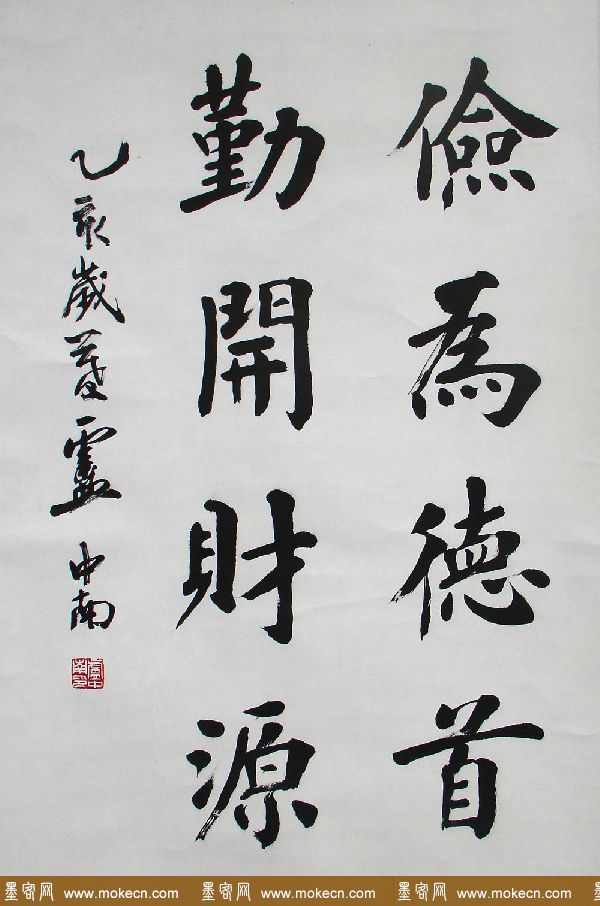 儉為德首
勤開財源
乙亥歲 盧中南
墨客网 www.mokecn.com 墨客网 www.mokecn.com 墨客网 www.mokecn.com